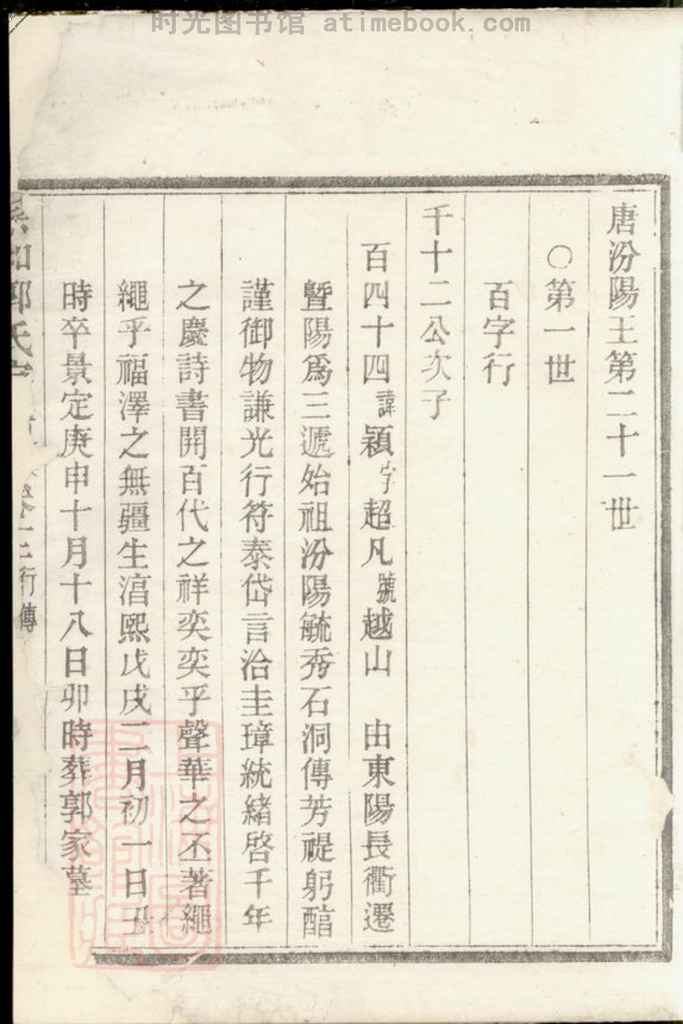 时光图书馆 atimebook.com
唐汾陽王第二十一世
○第一世
百字行
千十二公次子
百四十四諱穎字超凡號越山　由東陽長衢遷
暨陽爲三遞始祖汾陽毓秀石洞傳芳禔躬醕
謹御物謙光行符泰岱言洽圭璋統緒啓千年
之慶詩書開百代之祥奕奕乎聲華之丕著繩
繩乎福澤之無疆生湻熙戊戌二月初一日丑
時卒景定庚申十月十八日卯時葬郭家墓
郭氏
行傳